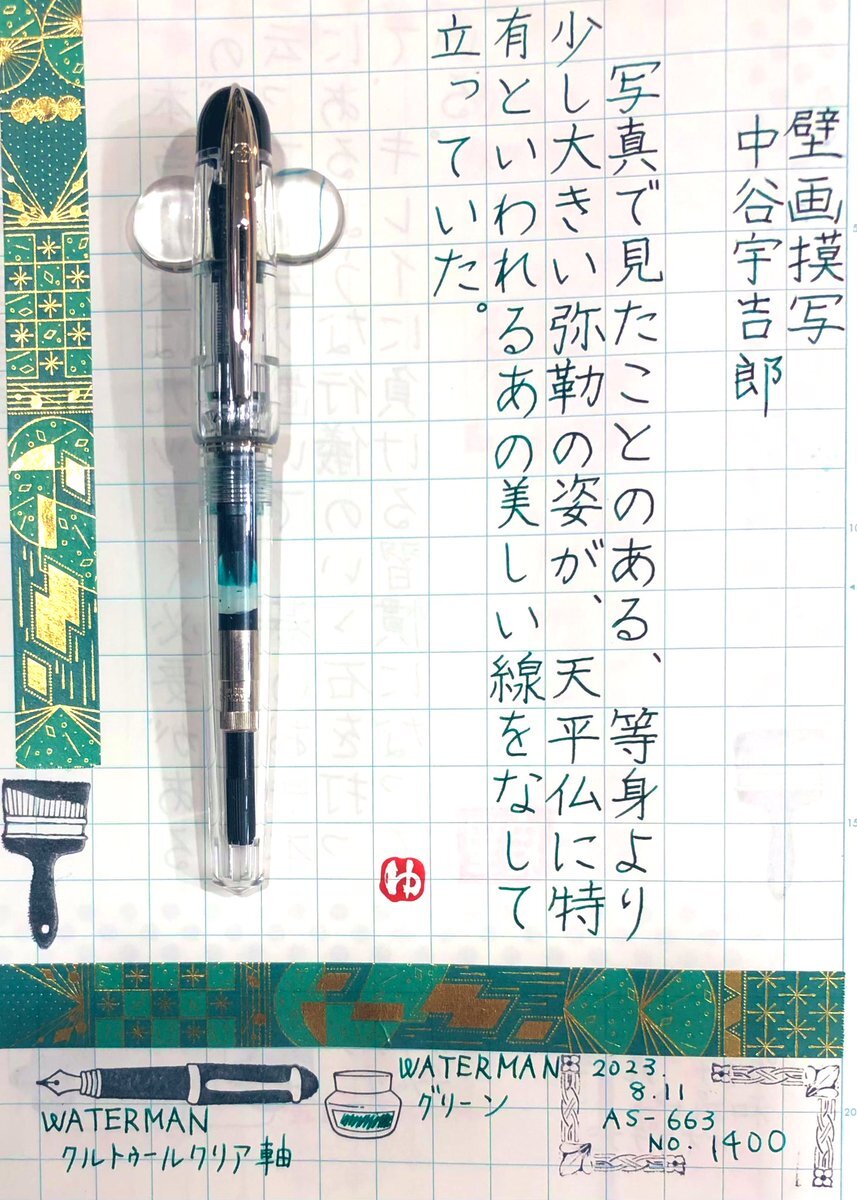 壁画摸写
中谷宇吉郎
写真で見たことのある、等身より
少し大きい弥勒の姿が、天平仏に特
有といわれるあの美しい線をなして
立っていた。
ゆ
WATERMAN
クルトゥールクリア軸
WATERMAN
グリーン
2023.
8.11
AS-663
NO. 1400
5
10
15
20